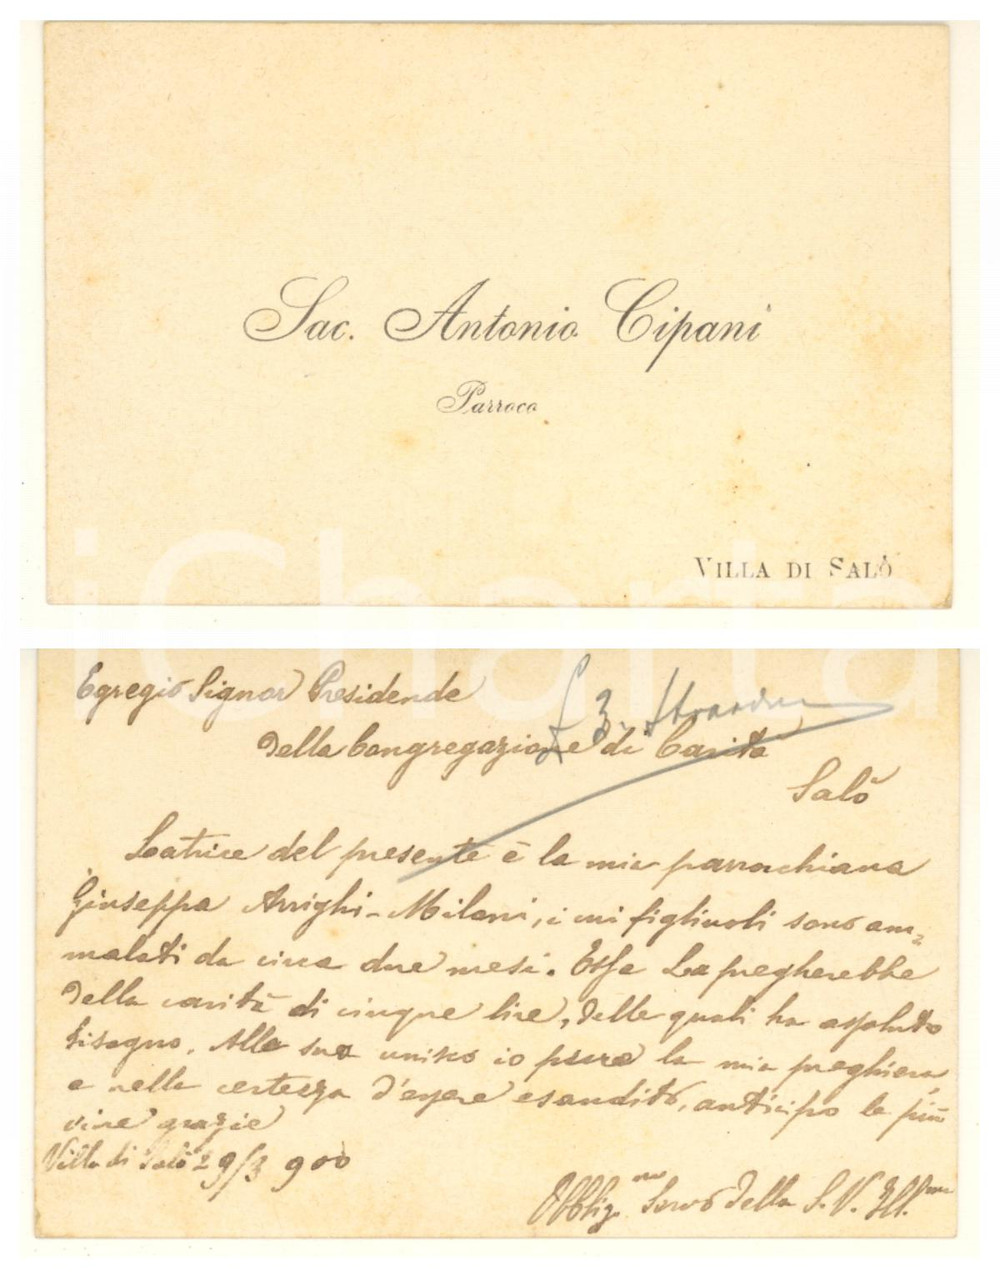 Sac. Antonio Cipani
Parroco
VILLA DI SALÒ
iCharta
Egregio Signor Presidende
£ 3.
della Congregazione di Carità
Salò
Latrice del presente è la mia parrochiana
Giuseppa Arrighi-Milani, i cui figliuoli sono am=
malati da circa due mesi. Essa La pregherebbe
della carità di cinque lire, delle quali ha assoluto
bisogno. Alla sua unisco io pure la mia preghiera
e nella certezza d'essere esaudito, anticipo le più
vive grazie
Villa di Salò 29/3 900
Obblig.mo Servo della S. V. Ill.ma